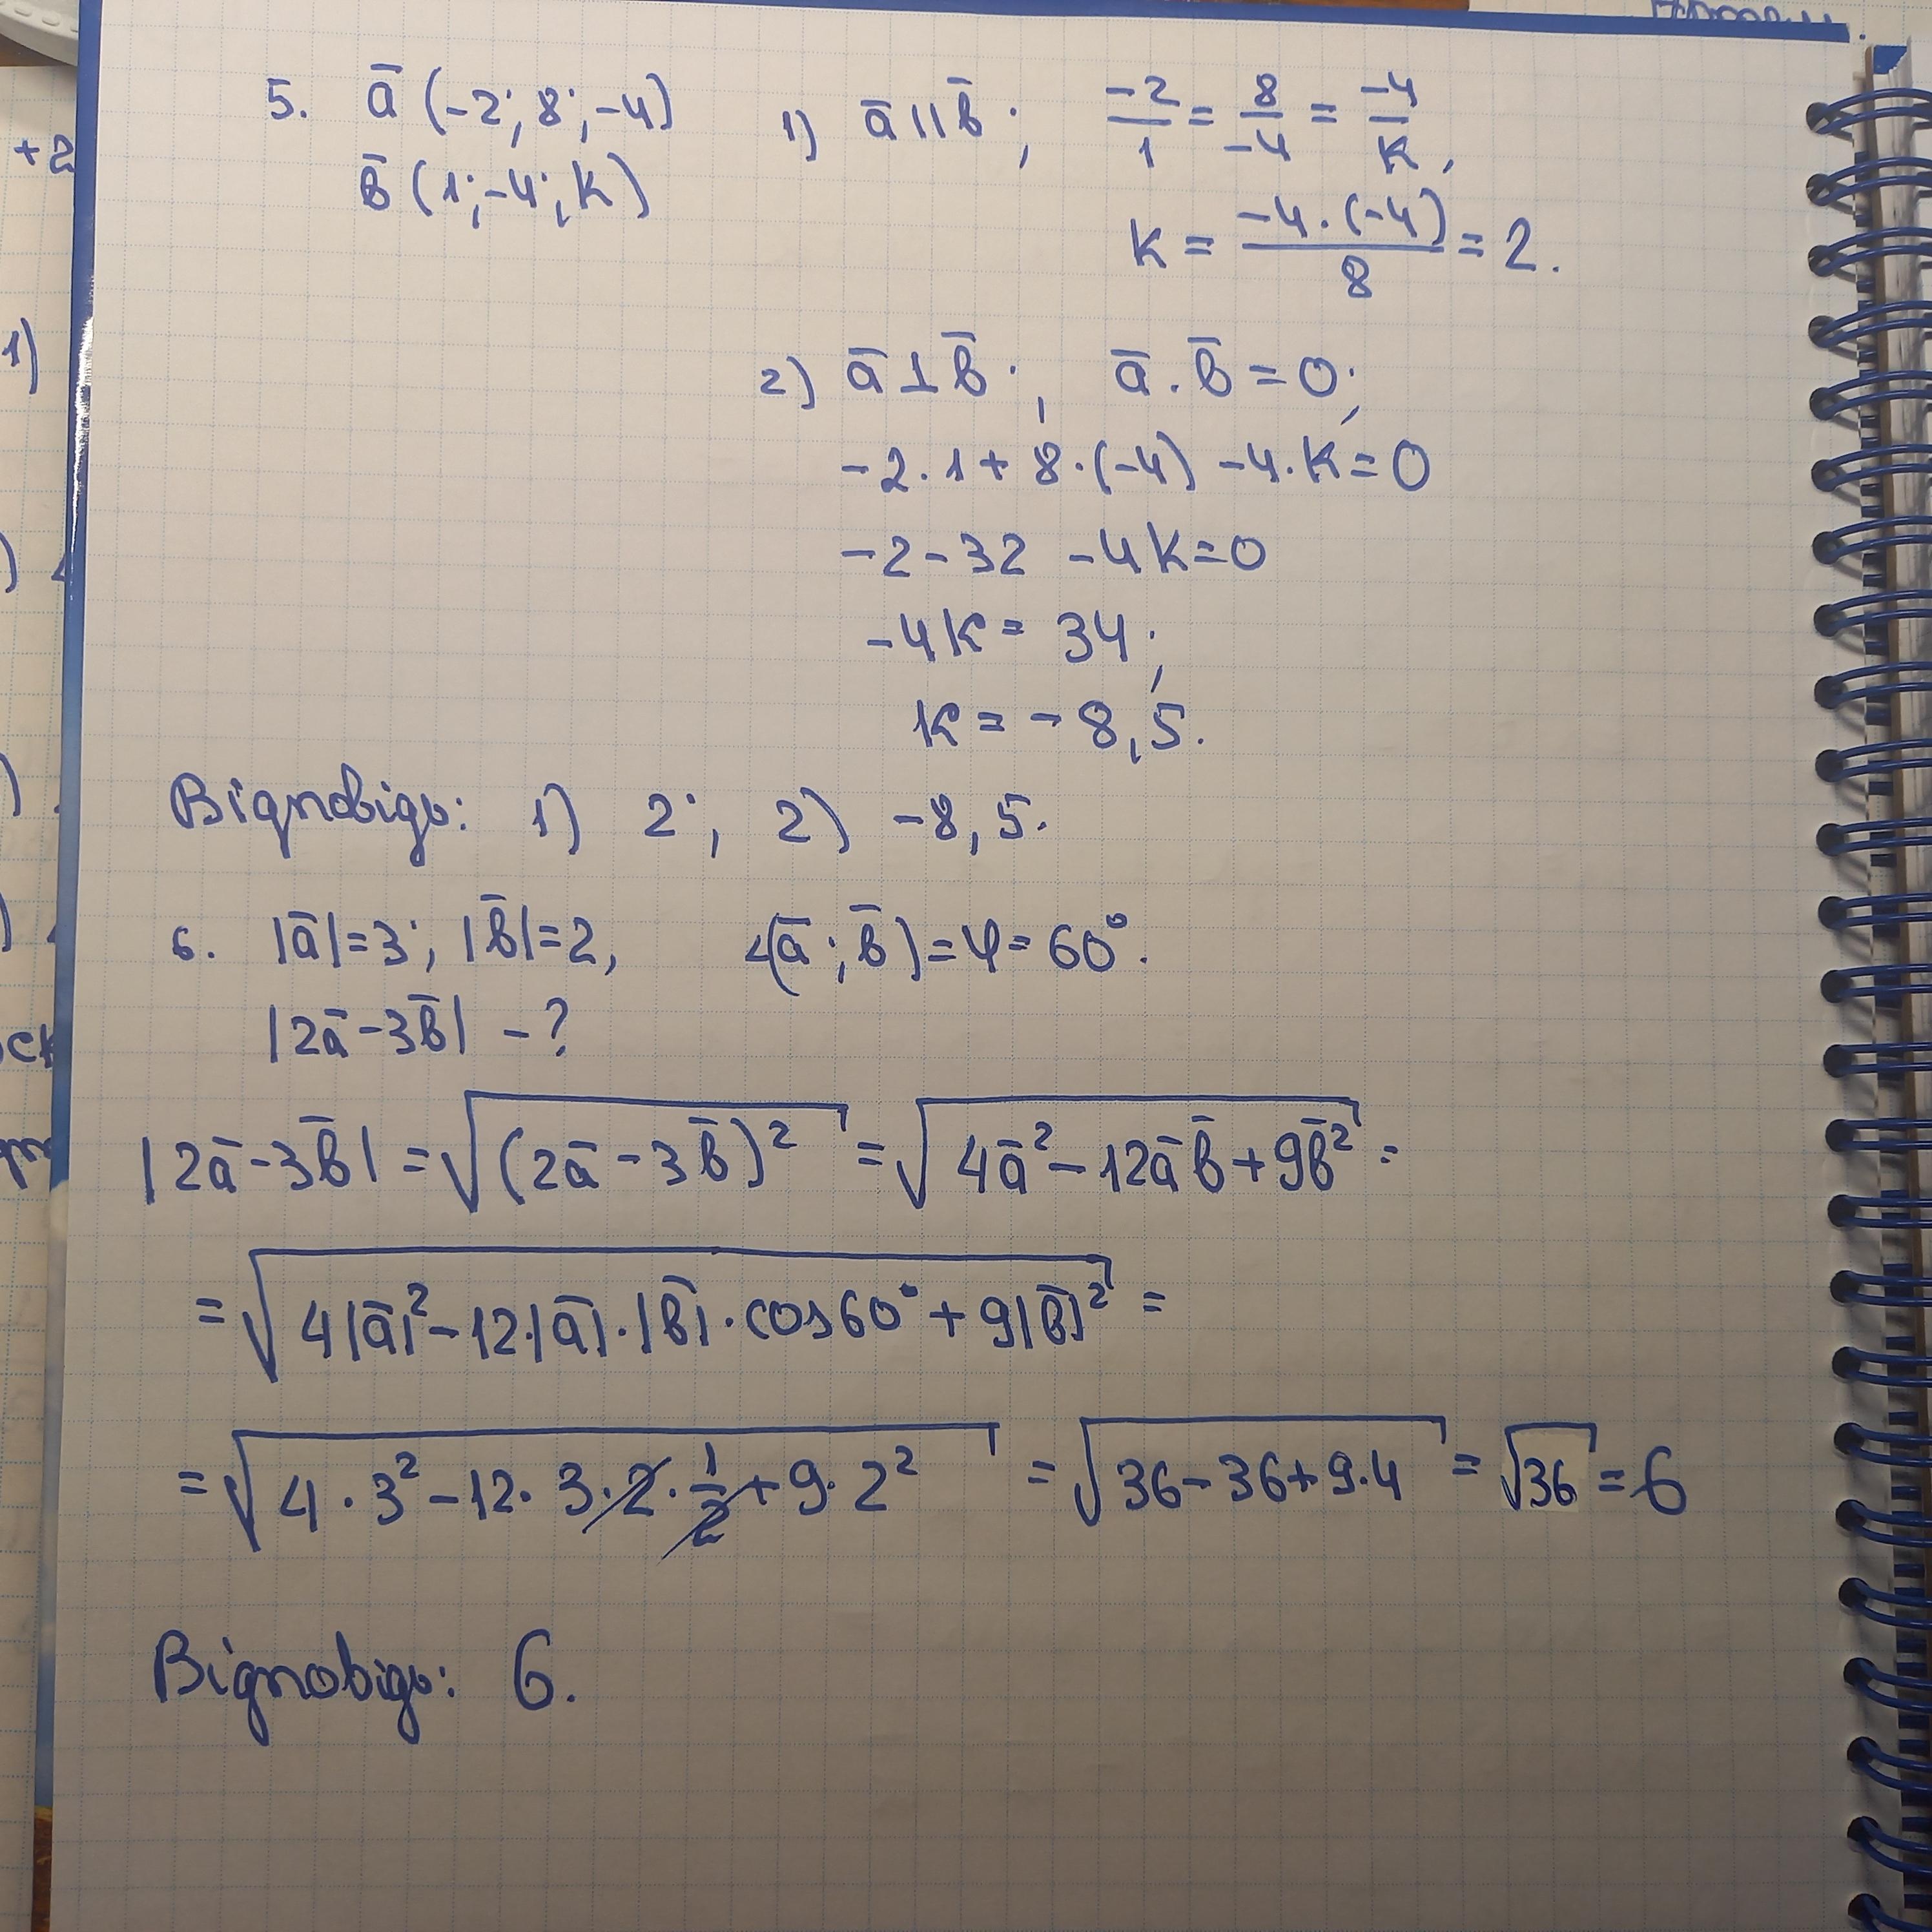 5. a̅ (-2; 8; -4) 1) a̅ || b̅; -2/1 = 8/-4 = -4/k,
b̅ (1; -4; k)
k = -4·(-4)/8 = 2.
2) a̅ ⊥ b̅; a̅ · b̅ = 0;
-2·1 + 8·(-4) -4·k = 0
-2-32 -4k=0
-4k = 34;
k = -8,5.
Відповідь: 1) 2; 2) -8,5.
6. |a̅|=3; |b̅|=2, ∠(a̅; b̅)=φ= 60°.
|2a̅-3b̅| -?
|2a̅-3b̅| = √((2a̅-3b̅)²) = √(4a̅²-12a̅b̅+9b̅²) =
= √(4|a̅|²-12·|a̅|·|b̅|·cos60°+9|b̅|²) =
= √(4·3²-12·3·2·1/2+9·2²) = √(36-36+9·4) = √36 = 6
Відповідь: 6.
+2
1)